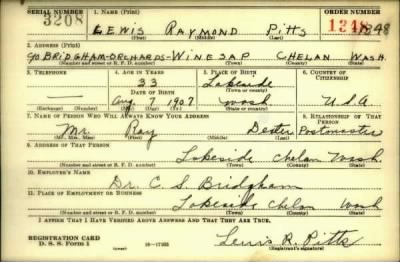 SERIAL NUMBER 1. NAME (Print) ORDER NUMBER
3208 LEWIS RAYMOND Pitts 1348
(First) (Middle) (Last)
2. ADDRESS (Print)
c/o BRIDGHAM-ORCHARDS-WINESAP CHELAN WASH.
(Number and street or R. F. D. number) (Town) (County) (State)
3. TELEPHONE 4. AGE IN YEARS 5. PLACE OF BIRTH 6. COUNTRY OF CITIZENSHIP
— 33 Lakeside
DATE OF BIRTH (Town or county)
Aug. 7 1907 Wash U.S.A
(Exchange) (Number) (Mo.) (Day) (Yr.) (State or country)
7. NAME OF PERSON WHO WILL ALWAYS KNOW YOUR ADDRESS 8. RELATIONSHIP OF THAT PERSON
Mr. Ray Dexter Postmaster
(Mr., Mrs., Miss) (First) (Middle) (Last)
9. ADDRESS OF THAT PERSON
Lakeside Chelan Wash.
(Number and street or R. F. D. number) (Town) (County) (State)
10. EMPLOYER'S NAME
Dr. C. S. Bridgham
11. PLACE OF EMPLOYMENT OR BUSINESS
Lakeside Chelan Wash
(Number and street or R. F. D. number) (Town) (County) (State)
I AFFIRM THAT I HAVE VERIFIED ABOVE ANSWERS AND THAT THEY ARE TRUE.
REGISTRATION CARD
D. S. S. Form 1 (over) 16—17105 Lewis R. Pitts
(Registrant's signature)